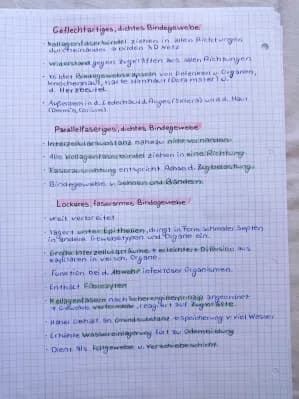 Geflechtartiges, dichtes Bindegewebe
· Kollagenfaserbündel ziehen in allen Richtungen
durcheinander & bilden 3D Netz
· Widerstand gegen Zugkräften aus allen Richtungen
· Bildet Bindegewebskapseln von Gelenken u. Organen,
Knochenhaut, harte Hirnhaut (Dura mater) u.
d. Herzbeutel.
· Außerdem in d. Lederhaut d. Auges (Sclera) und d. Haut
(Dermis, Corium)
Parallelfaseriges, dichtes Bindegewebe
· Interzellularsubstanz nahezu nicht vorhanden.
· Alle Kollagenfaserbündel ziehen in eine Richtung
· Faseranordnung entspricht Achse d. Zugbelastung.
· Bindegewebe v. Sehnen und Bändern.
Lockeres, faserarmes Bindegewebe
· weit verbreitet
· Lagert unter Epithelien, dringt in Form schmaler Septen
in andere Gewebstypen und Organe ein.
· Große Interzellularräume → erleichtere Diffusion aus
Kapillaren in versch. Organe.
· Funktion bei d. Abwehr infektiöser Organismen.
· Enthält Fibrozyten
· Kollagenfasern nach Scherengitterprinzip angeordnet
→ Gewebe verformbar, reagiert auf Zugkräfte.
· Hoher Gehalt an Grundsubstanz → Speicherung v. viel Wasser.
· Erhöhte Wassereinlagerung führt zu Ödembildung
· Dient als Füllgewebe u. Verschiebeschicht.